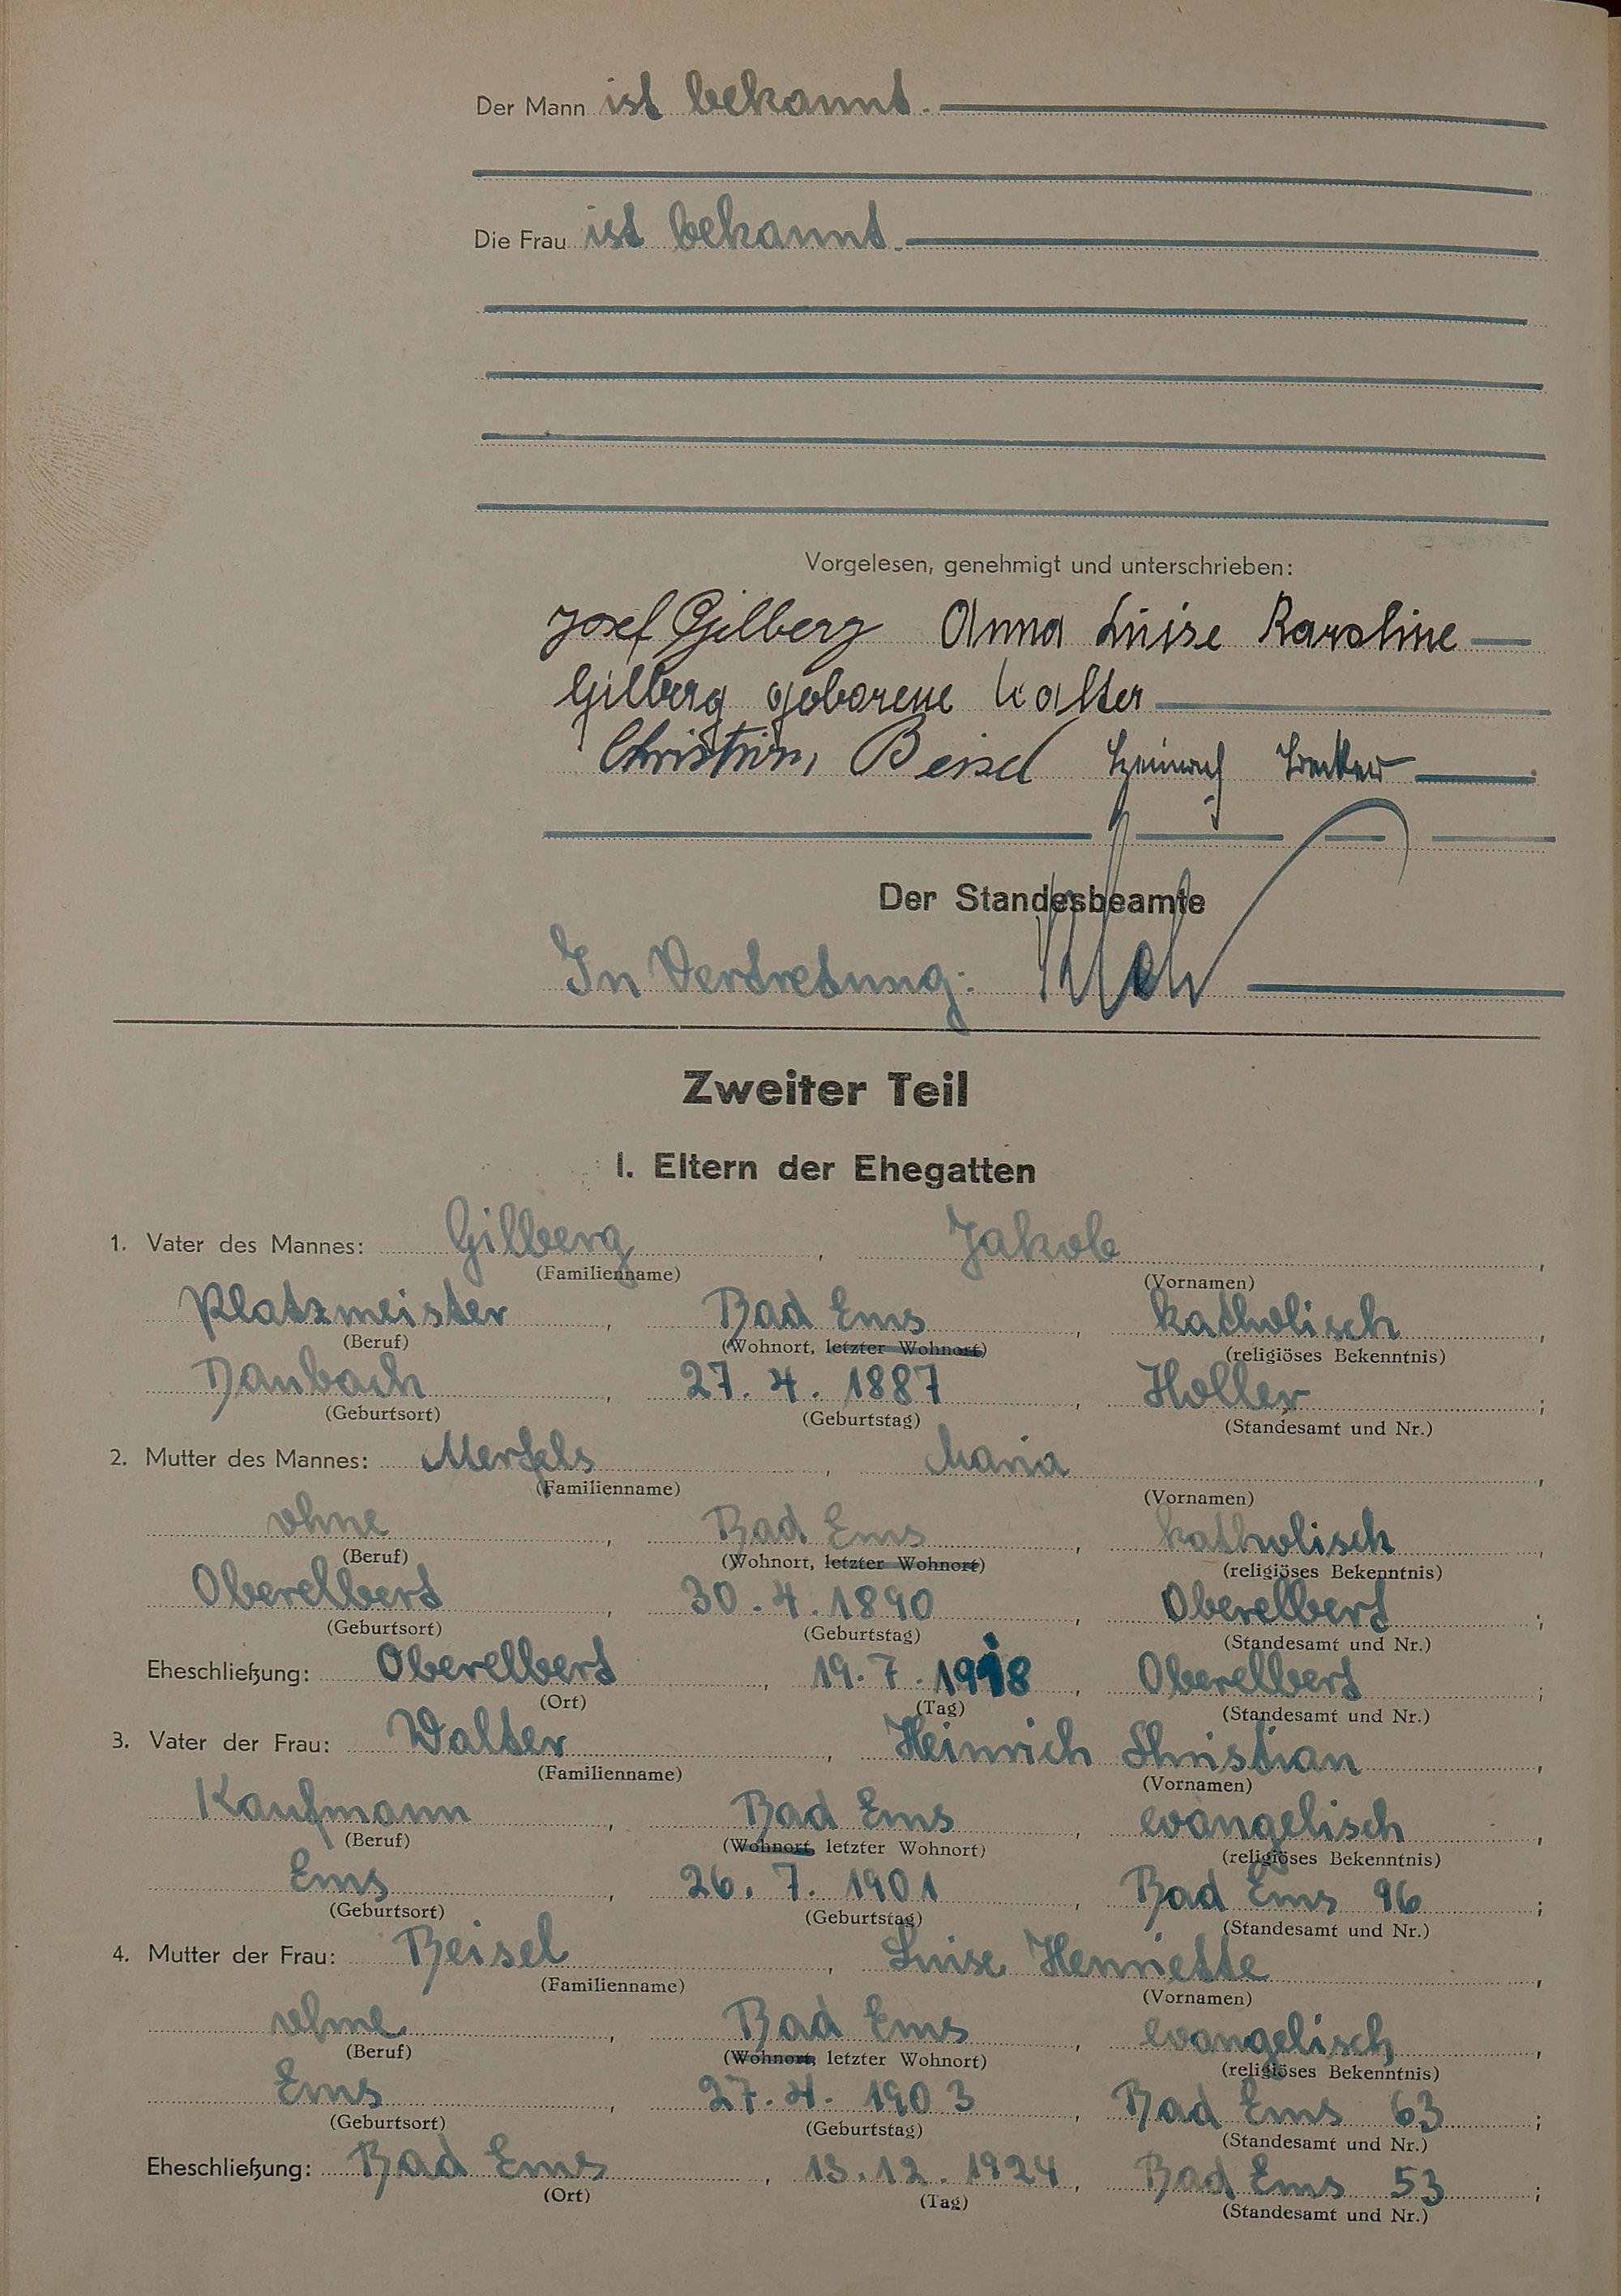 Der Mann ist bekannt.
Die Frau ist bekannt.
Vorgelesen, genehmigt und unterschrieben:
Josef Gilberg Anna Luise Karoline
Gilberg geborene Walter
Christian Beisel Heinrich Becker
Der Standesbeamte
In Vertretung:
Zweiter Teil
I. Eltern der Ehegatten
1. Vater des Mannes: Gilberg, Jakob,
(Familienname) (Vornamen)
Platzmeister, Bad Ems, katholisch,
(Beruf) (Wohnort, letzter Wohnort) (religiöses Bekenntnis)
Daubach, 27. 4. 1887, Holler;
(Geburtsort) (Geburtstag) (Standesamt und Nr.)
2. Mutter des Mannes: Merfels, Maria,
(Familienname) (Vornamen)
ohne, Bad Ems, katholisch,
(Beruf) (Wohnort, letzter Wohnort) (religiöses Bekenntnis)
Oberelbert, 30. 4. 1890, Oberelbert;
(Geburtsort) (Geburtstag) (Standesamt und Nr.)
Eheschließung: Oberelbert, 19. 7. 1918, Oberelbert;
(Ort) (Tag) (Standesamt und Nr.)
3. Vater der Frau: Walter, Heinrich Christian,
(Familienname) (Vornamen)
Kaufmann, Bad Ems, evangelisch,
(Beruf) (Wohnort, letzter Wohnort) (religiöses Bekenntnis)
Ems, 26. 7. 1901, Bad Ems 96;
(Geburtsort) (Geburtstag) (Standesamt und Nr.)
4. Mutter der Frau: Beisel, Luise Henriette,
(Familienname) (Vornamen)
ohne, Bad Ems, evangelisch,
(Beruf) (Wohnort, letzter Wohnort) (religiöses Bekenntnis)
Ems, 27. 4. 1903, Bad Ems 63;
(Geburtsort) (Geburtstag) (Standesamt und Nr.)
Eheschließung: Bad Ems, 13. 12. 1924, Bad Ems 53;
(Ort) (Tag) (Standesamt und Nr.)